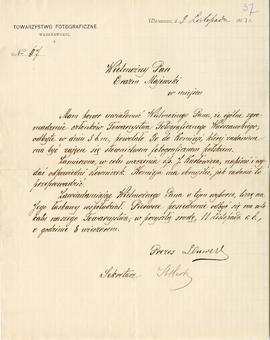 37
TOWARZYSTWO FOTOGRAFICZNE
WARSZAWSKIE.
Warszawa, d. 9 Listopada
№ 67
Wielmożny Pan
Erazm Majewski
w miejscu
Mam honor uwiadomić Wielmożnego Pana, że ogólne zgro-
madzenie członków Towarzystwa Fotograficznego Warszawskiego,
odbyte w dniu 3 b.m., powołało Go do Komisyi, której zadaniem
ma być zajęcie się słownictwem fotograficznem polskiem.
Zamierzono, w celu uczczenia ś.p. J. napisać i wy-
dać odpowiedni słowniczek. Komisya ma obmyśleć, jak zadanie to
przeprowadzić.
Zawiadamiając Wielmożnego Pana o tym wyborze, liczę na
Jego łaskawy współudział. Pierwsze posiedzenie odbędzie się w lo-
kalu naszego Towarzystwa, w przyszłą środę, 11 Listopada r.b.,
o godzinie 8 wieczorem.
Prezes
Sekretarz